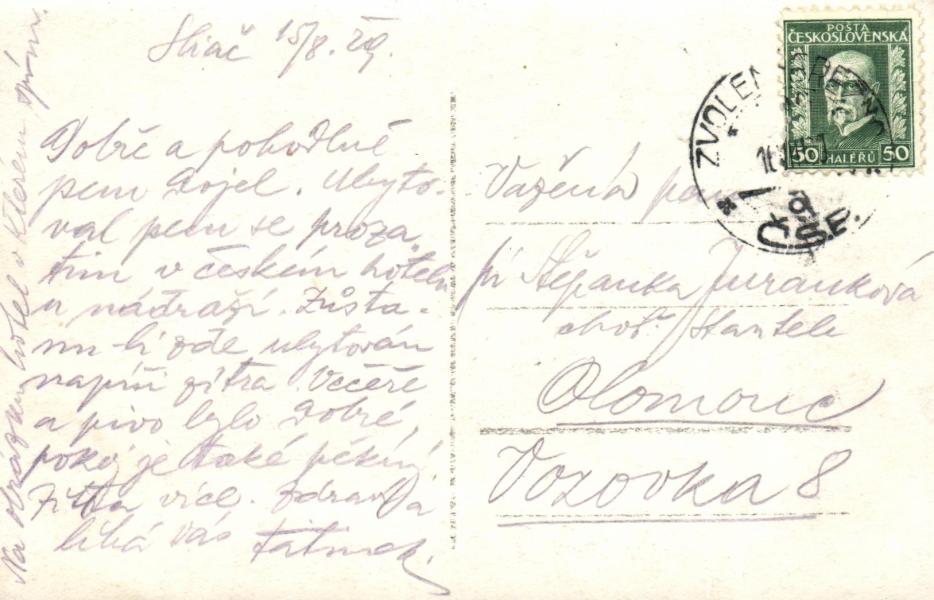 Sliač 15/8. 29.
Dobře a pohodlně
jsem dojel. Ubyto-
val jsem se proza-
tím v českém hotelu
u nádraží. Zůsta-
nu-li zde ubytován
napíši zítra. Večeře
a pivo bylo dobré,
pokoj je také pěkný.
Zítra více. Zdraví a
líbá Vás Tatínek.
Na obrázku hotel v kterém spím.
POŠTA
ČESKOSLOVENSKÁ
50 HALÉŘŮ 50
ZVOLEN
ČSP.
Vážená paní
pí Štěpanka Juranková
choť
Olomouc
Vozovka 8